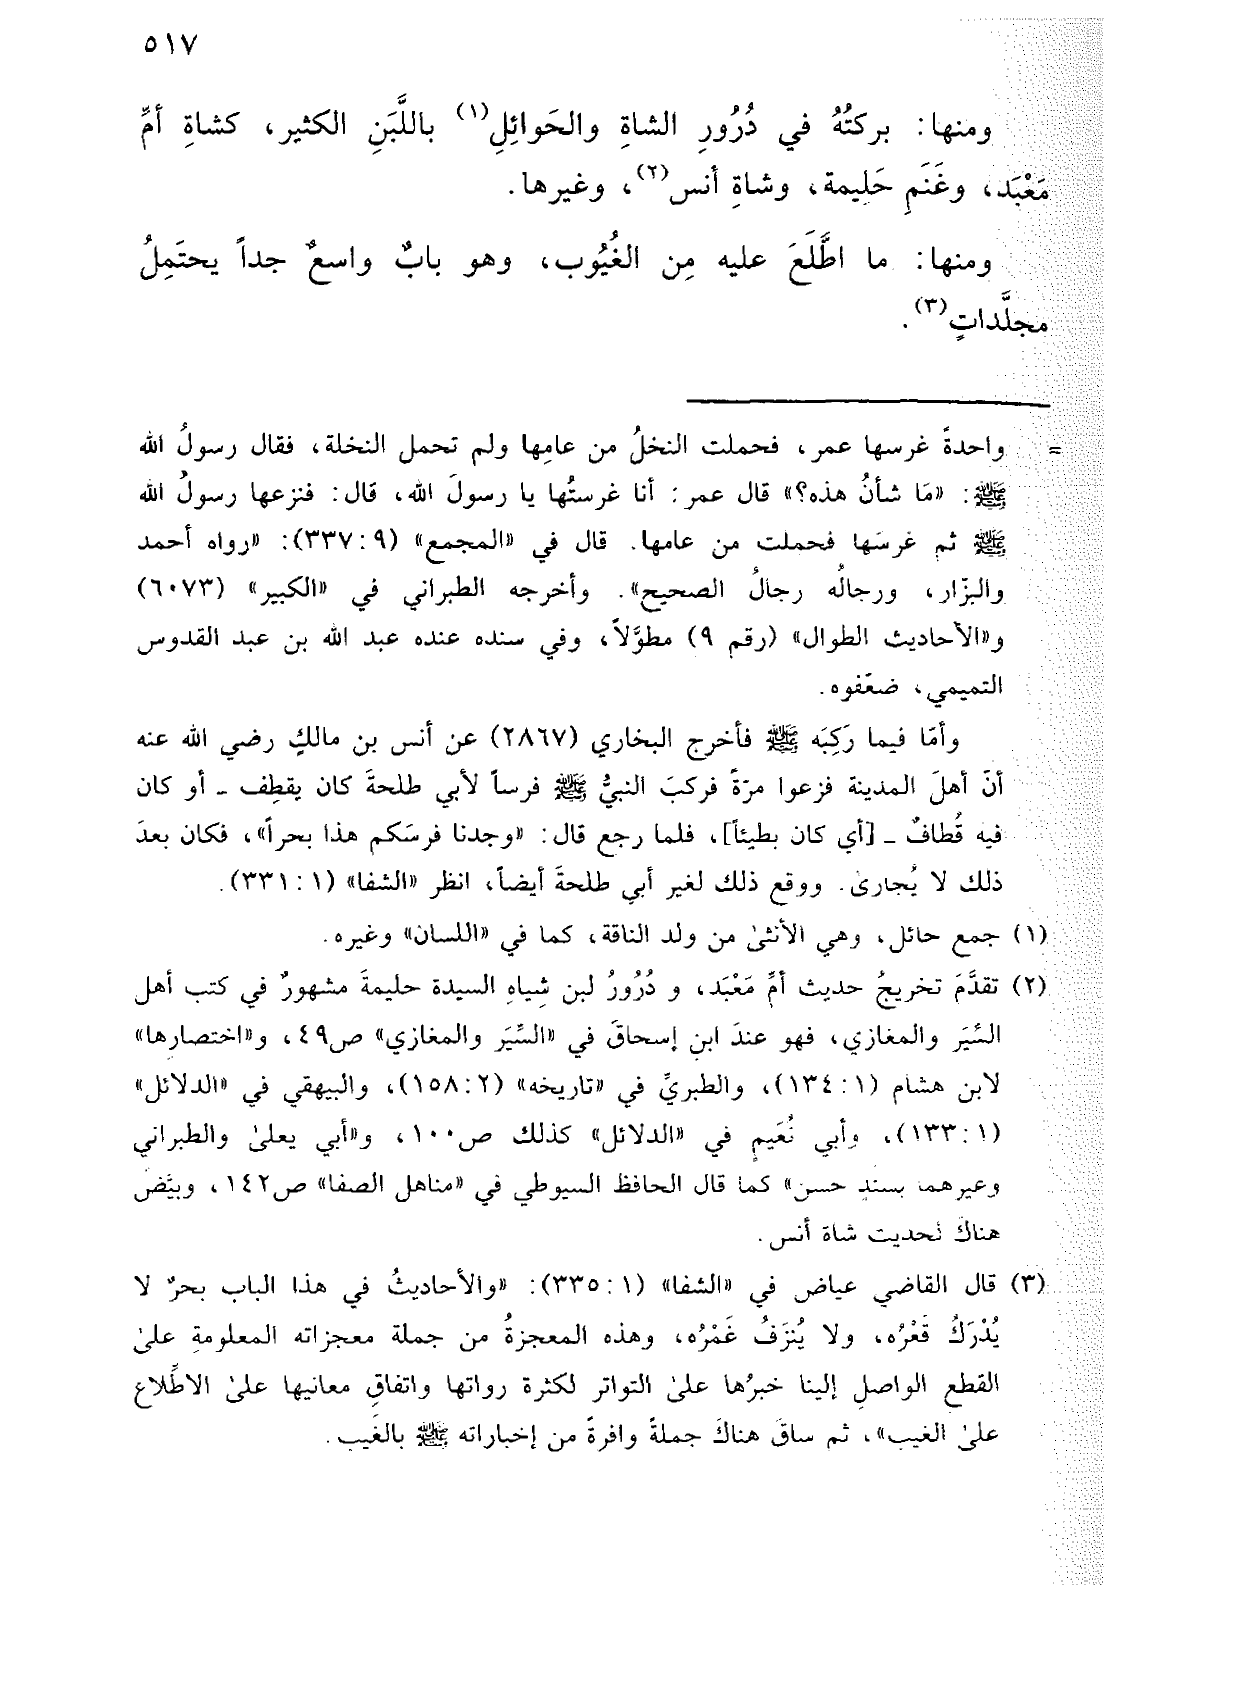 ٥١٧
ومنها: بركتُهُ في دُرُورِ الشاةِ والحَوائِلِ(١) باللَّبَنِ الكثير، كشاةِ أمِّ
مَعْبَد، وغَنَمِ حَلِيمة، وشاةِ أنس(٢)، وغيرها.
ومنها: ما اطَّلَعَ عليه مِن الغُيُوب، وهو بابٌ واسعٌ جداً يحتَمِلُ
مجلَّداتٍ(٣).
= واحدةً غرسها عمر، فحملت النخلُ من عامِها ولم تحمل النخلة، فقال رسولُ الله
ﷺ: «مَا شأنُ هذه؟» قال عمر: أنا غرستُها يا رسولَ الله، قال: فنزعها رسولُ الله
ﷺ ثم غرسَها فحملت من عامها. قال في «المجمع» (٩: ٣٣٧): «رواه أحمد
والبزّار، ورجالُه رجالُ الصحيح». وأخرجه الطبراني في «الكبير» (٦٠٧٣)
و«الأحاديث الطوال» (رقم ٩) مطوَّلاً، وفي سنده عنده عبد الله بن عبد القدوس
التميمي، ضعّفوه.
وأمّا فيما رَكِبَه ﷺ فأخرج البخاري (٢٨٦٧) عن أنس بن مالكٍ رضي الله عنه
أنّ أهلَ المدينة فزعوا مرّةً فركبَ النبيُّ ﷺ فرساً لأبي طلحةَ كان يقطِف ـ أو كان
فيه قُطافٌ ـ [أي كان بطيئاً]، فلما رجع قال: «وجدنا فرسَكم هذا بحراً»، فكان بعدَ
ذلك لا يُجارىٰ. ووقع ذلك لغير أبي طلحةَ أيضاً، انظر «الشفا» (١: ٣٣١).
(١) جمع حائل، وهي الأنثىٰ من ولد الناقة، كما في «اللسان» وغيره.
(٢) تقدَّمَ تخريجُ حديث أمِّ مَعْبَد، و دُرُورُ لبن شِياهِ السيدة حليمةَ مشهورٌ في كتب أهل
السِّيَر والمغازي، فهو عندَ ابنِ إسحاقَ في «السِّيَر والمغازي» ص٤٩، و«اختصارها»
لابن هشام (١: ١٣٤)، والطبريِّ في «تاريخه» (٢: ١٥٨)، والبيهقي في «الدلائل»
(١: ١٣٣)، وأبي نُعَيمٍ في «الدلائل» كذلك ص١٠٠، و«أبي يعلىٰ والطبراني
وغيرهما بسندٍ حسن» كما قال الحافظ السيوطي في «مناهل الصفا» ص١٤٢، وبيَّضَ
هناكَ لحديث شاة أنس.
(٣) قال القاضي عياض في «الشفا» (١: ٣٣٥): «والأحاديثُ في هذا الباب بحرٌ لا
يُدْرَكُ قَعْرُه، ولا يُنزَفُ غَمْرُه، وهذه المعجزةُ من جملة معجزاته المعلومةِ علىٰ
القطع الواصلِ إلينا خبرُها علىٰ التواتر لكثرة رواتها واتفاقِ معانيها علىٰ الاطِّلاع
علىٰ الغيب»، ثم ساقَ هناكَ جملةً وافرةً من إخباراته ﷺ بالغَيب.